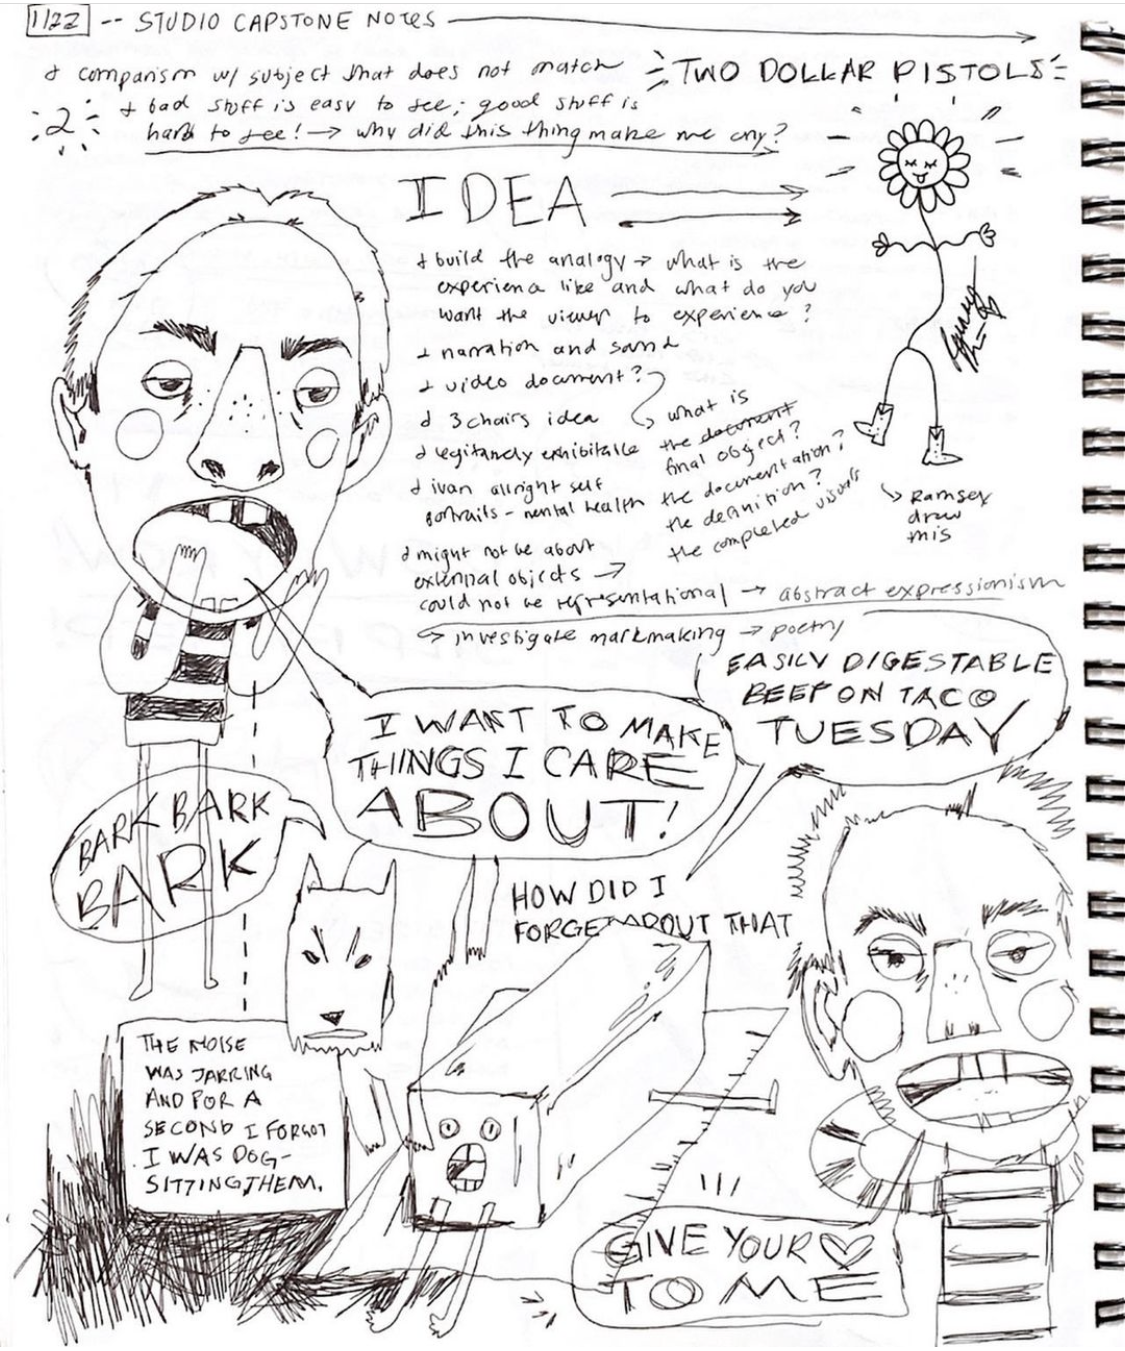 1/22 -- STUDIO CAPSTONE NOTES
+ comparism w/ subject that does not match
TWO DOLLAR PISTOLS
2
+ bad stuff is easy to see; good stuff is
hard to see! → why did this thing make me cry?
IDEA
+ build the analogy → what is the
experience like and what do you
want the viewer to experience?
+ narration and sound
+ video document?
+ 3 chairs idea
+ legitamely exhibitable
+ ivan allright self
portraits - mental health
what is
the document
final object?
the documentation?
the definition?
the completed visuals
+ might not be about
external objects →
could not be representational → abstract expressionism
↪ investigate markmaking → poetry
↳ Ramsey
drew
this
EASILY DIGESTABLE
BEEF ON TACO
TUESDAY
I WANT TO MAKE
THINGS I CARE
ABOUT!
BARK BARK
BARK
HOW DID I
FORGET ABOUT THAT
THE NOISE
WAS JARRING
AND FOR A
SECOND I FORGOT
I WAS DOG-
SITTING THEM.
GIVE YOUR ♡
TO ME